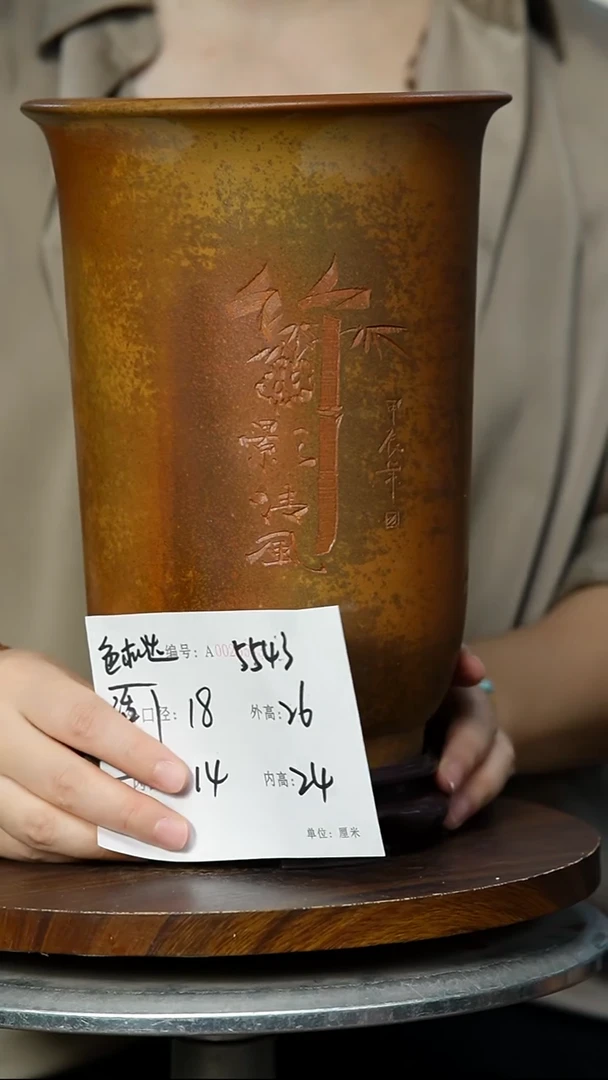 竹
影
清
風
甲辰年
编号: A002 5543
口径: 18 外高: 26
14 内高: 24
单位: 厘米